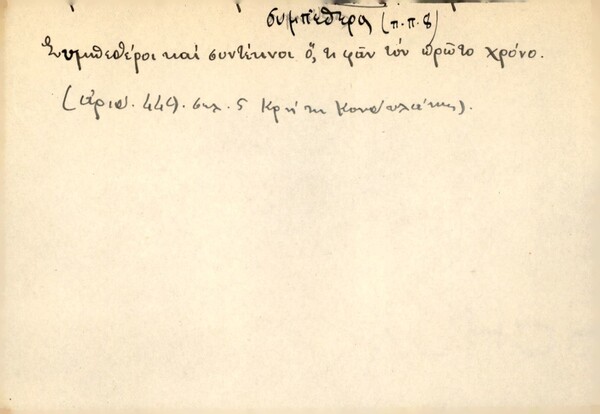 συμπεθερα (π.π.8)
Συμπεθέροι καί συντέκνοι ὅ,τι φᾶν τόν πρῶτο χρόνο.
(ἀριθ. 449. σελ. 5 Κρήτη